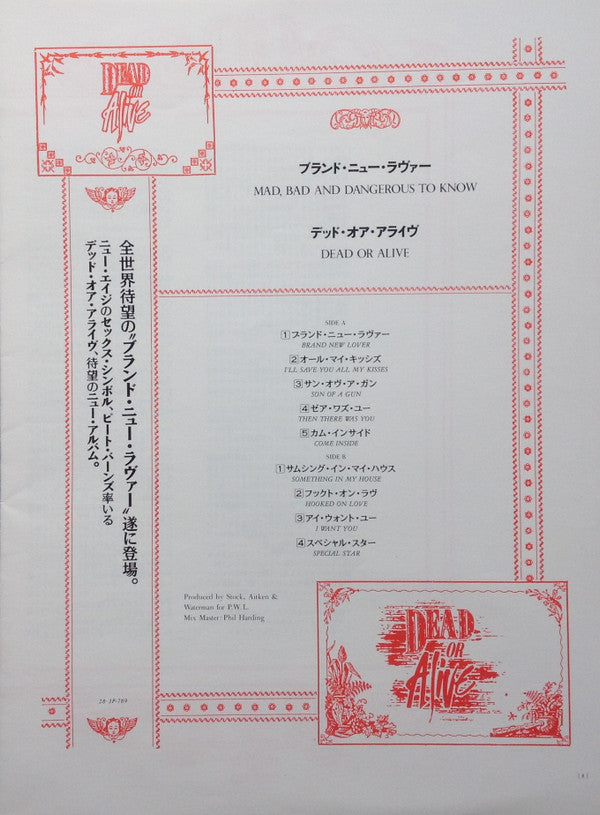 DEAD
OR
Alive
ブランド・ニュー・ラヴァー
MAD, BAD AND DANGEROUS TO KNOW
デッド・オア・アライヴ
DEAD OR ALIVE
全世界待望の“ブランド・ニュー・ラヴァー”遂に登場。
ニュー・エイジのセックス・シンボル、ピート・バーンズ率いる
デッド・オア・アライヴ、待望のニュー・アルバム。
SIDE A
1 ブランド・ニュー・ラヴァー
BRAND NEW LOVER
2 オール・マイ・キッシズ
I'LL SAVE YOU ALL MY KISSES
3 サン・オヴ・ア・ガン
SON OF A GUN
4 ゼア・ワズ・ユー
THEN THERE WAS YOU
5 カム・インサイド
COME INSIDE
SIDE B
1 サムシング・イン・マイ・ハウス
SOMETHING IN MY HOUSE
2 フックト・オン・ラヴ
HOOKED ON LOVE
3 アイ・ウォント・ユー
I WANT YOU
4 スペシャル・スター
SPECIAL STAR
Produced by Stock, Aitken &
Waterman for P.W.L.
Mix Master: Phil Harding
28·3P-789
DEAD
OR
Alive